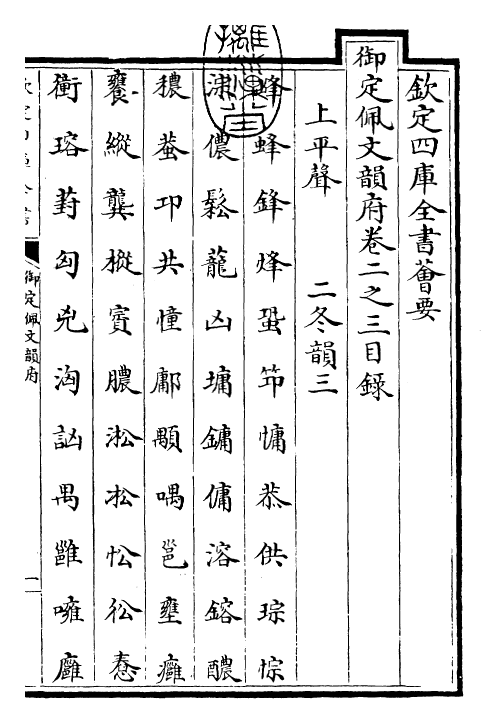 欽定四庫全書薈要
御定佩文韻府卷二之三目錄
上平聲 二冬韻三
峰 蜂 鋒 烽 蛩 笻 慵 恭 供 琮 悰
淙 儂 鬆 蘢 凶 墉 鏞 傭 溶 鎔 醲
穠 蛬 邛 共 憧 鄘 顒 喁 邕 壅 癰
饔 縱 龔 樅 賨 膿 淞 凇 忪 彸 惷
衝 瑢 葑 匈 兇 洶 訩 禺 雝 噰 廱
御定佩文韻府
一